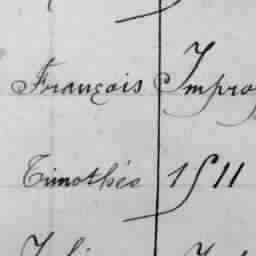 François Impro
Timothés 1511